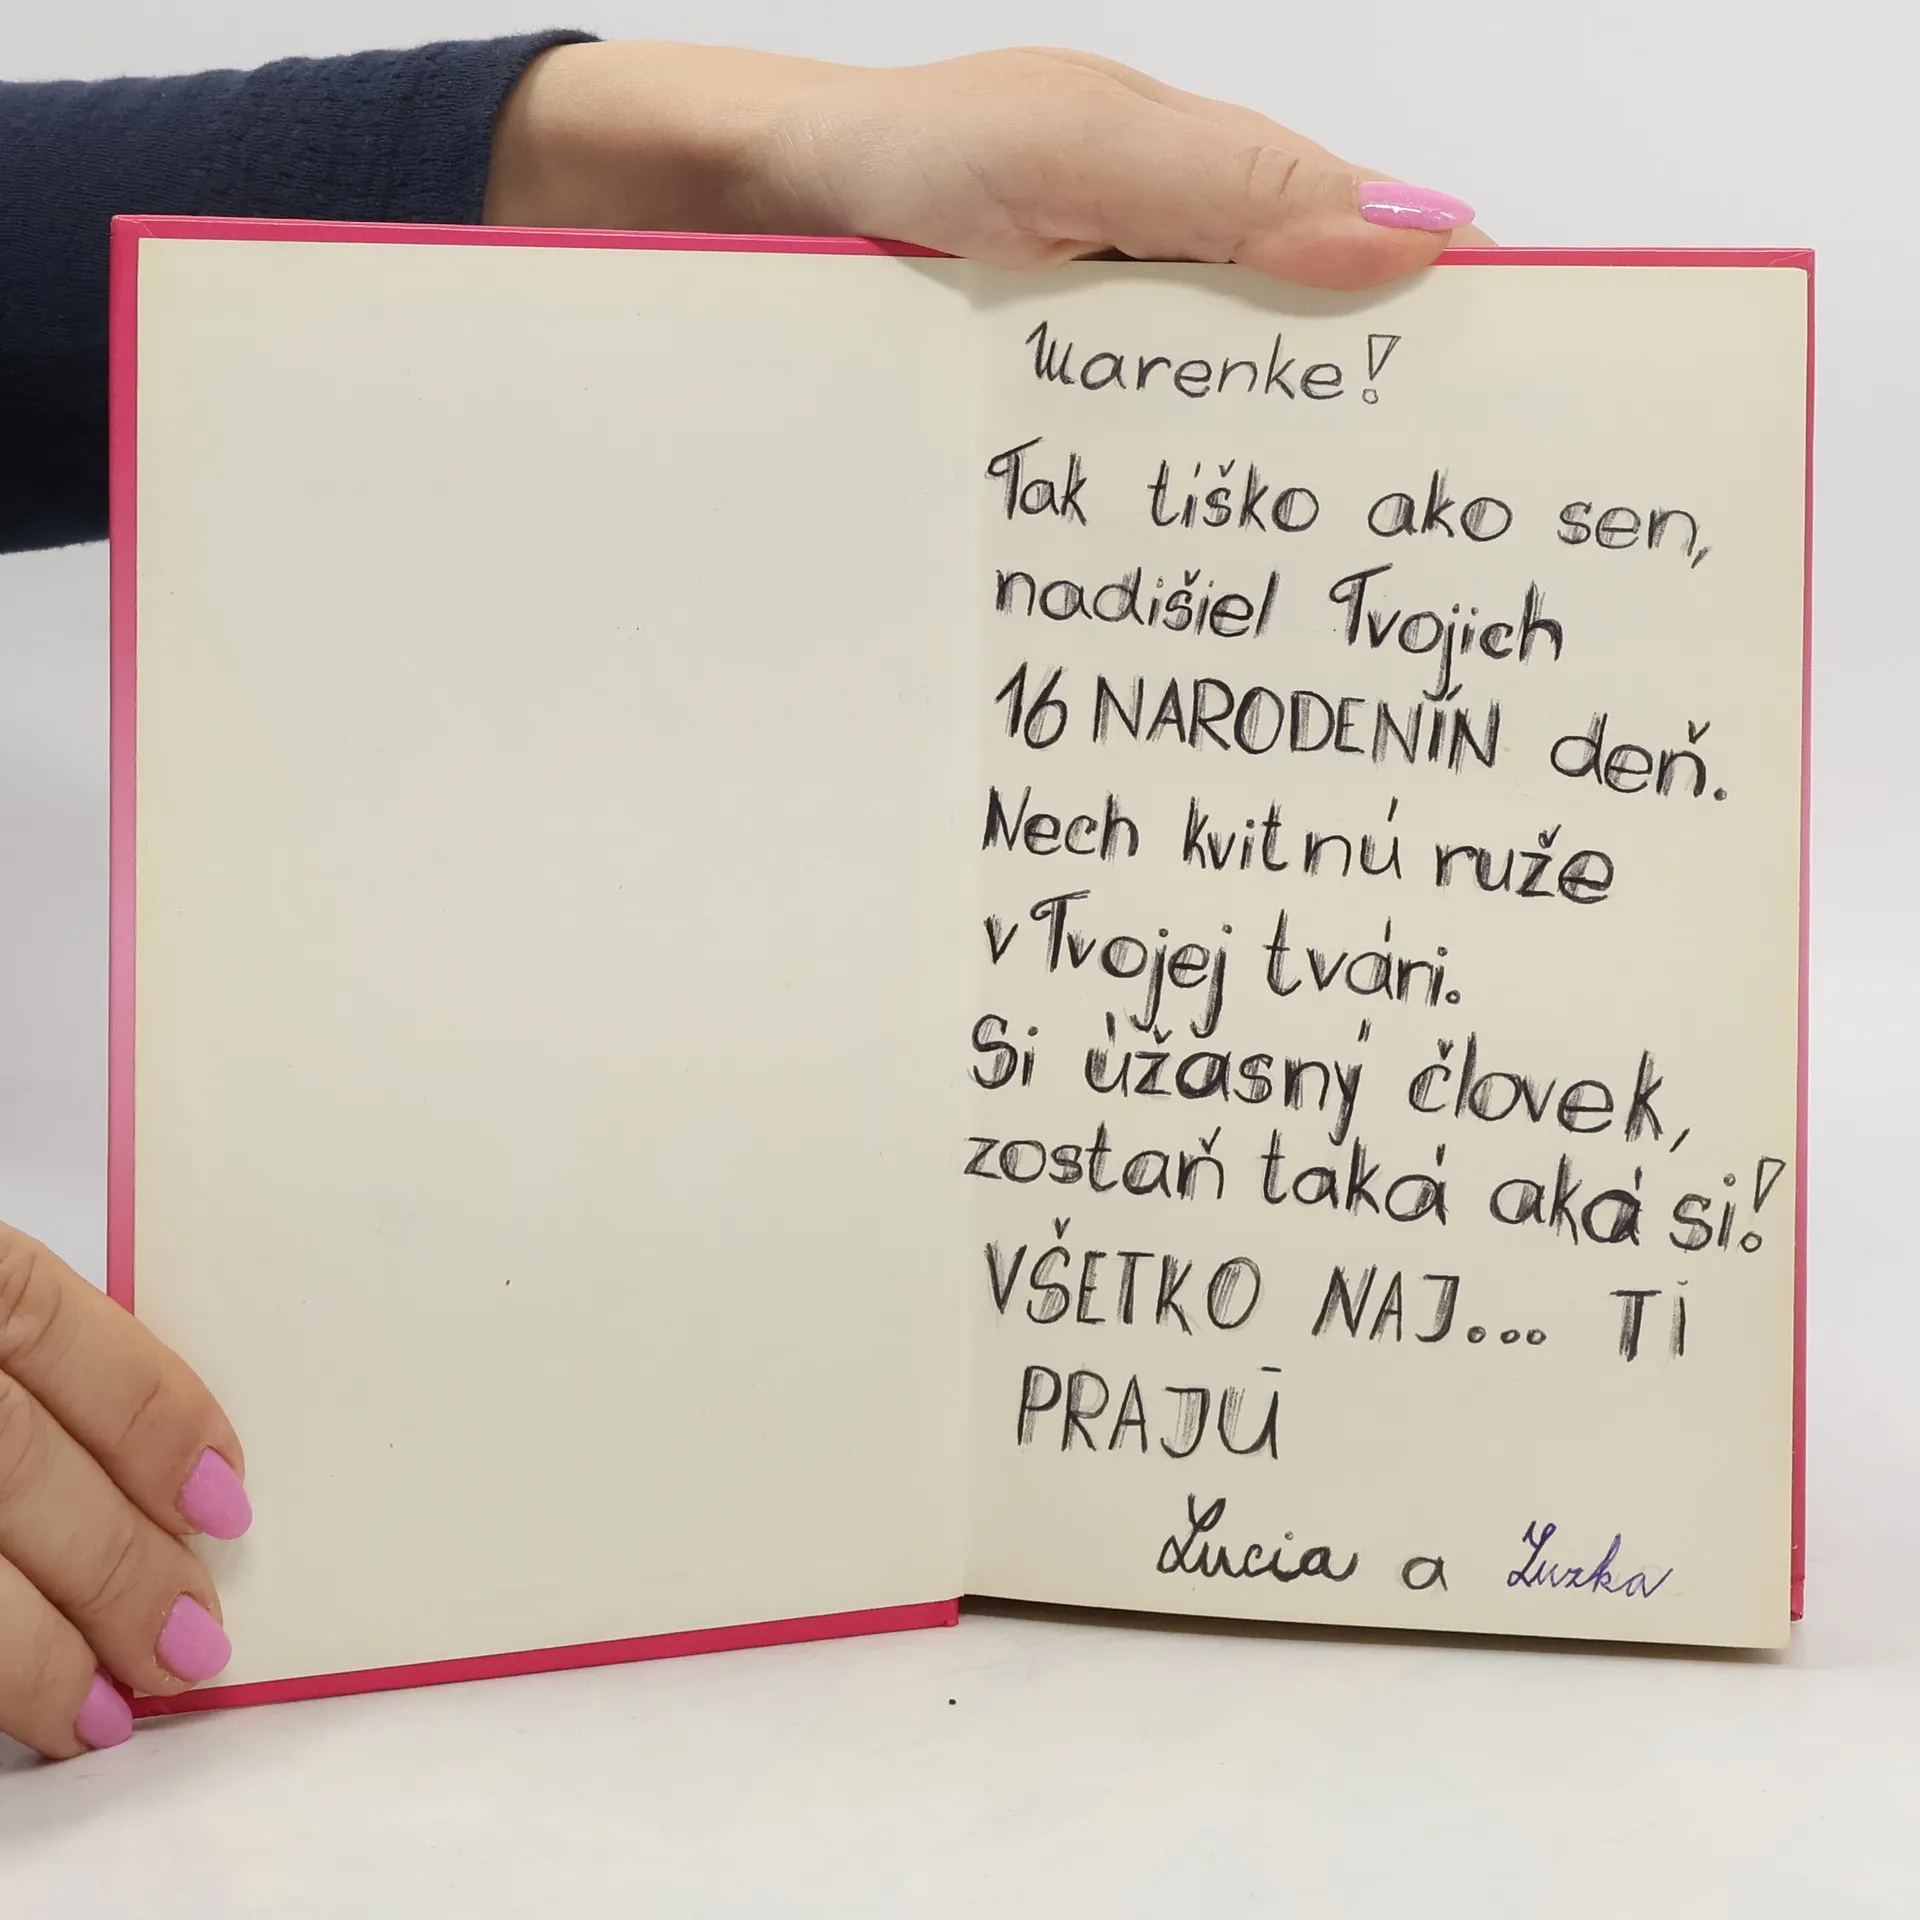 Marenke!
Tak tiško ako sen,
nadišiel Tvojich
16 NARODENÍN deň.
Nech kvitnú ruže
v Tvojej tvári.
Si úžasný človek,
zostaň taká aká si!
VŠETKO NAJ... TI
PRAJÚ
Lucia a Zuzka